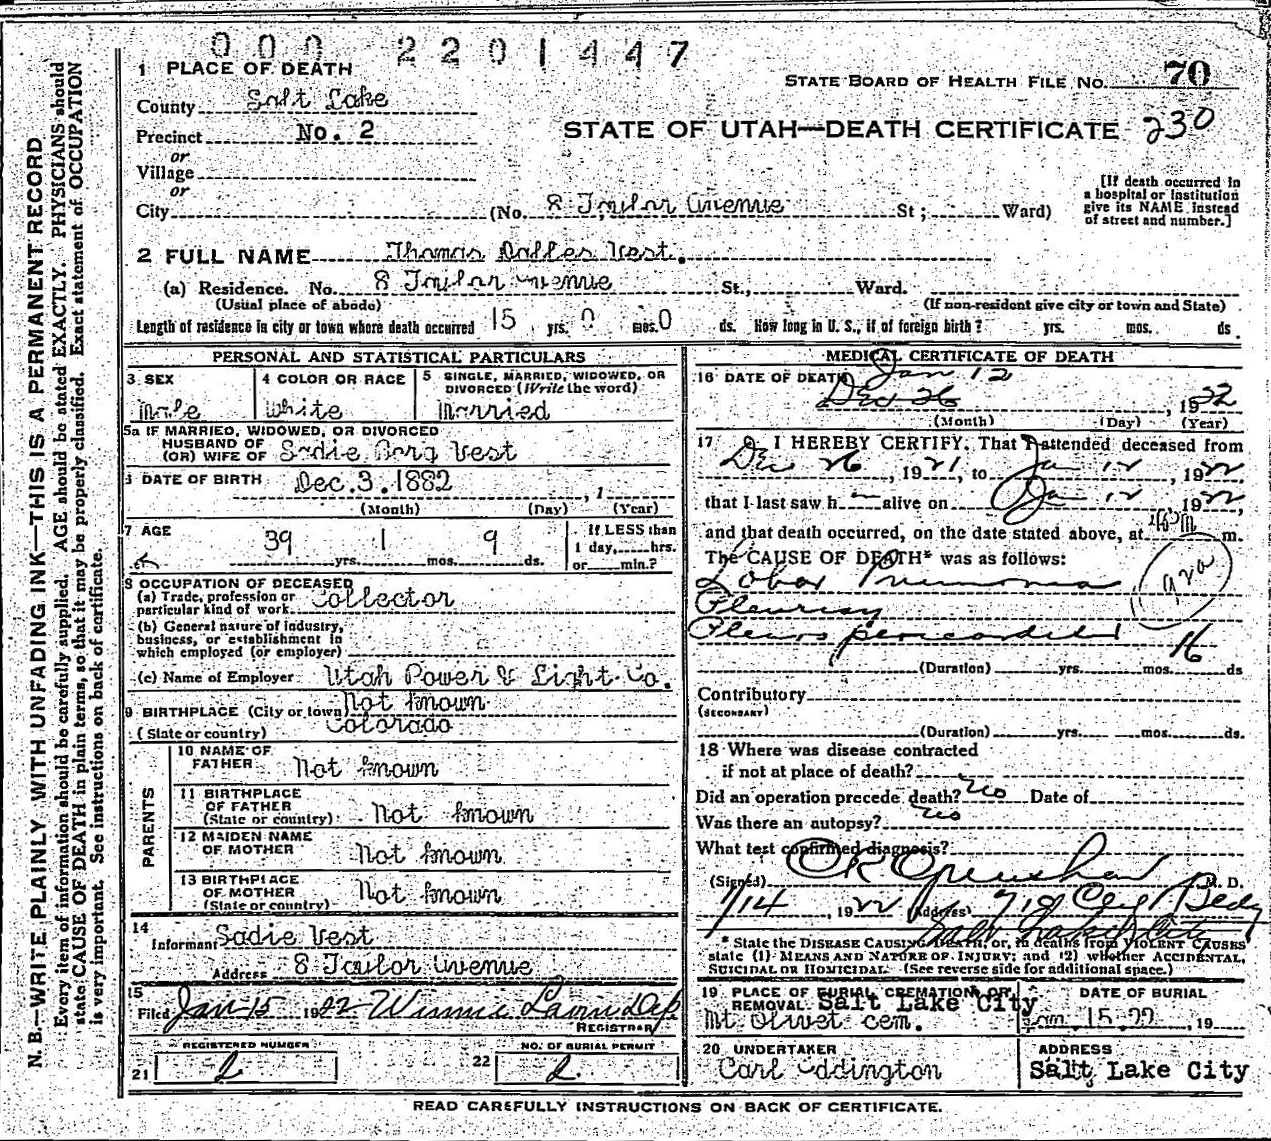 000 2201447
1 PLACE OF DEATH
STATE BOARD OF HEALTH FILE NO. 70
County Salt Lake
Precinct No. 2
STATE OF UTAH—DEATH CERTIFICATE 230
or
Village
or
City (No. 8 Taylor Avenue St; Ward)
[If death occurred in
a hospital or institution
give its NAME instead
of street and number.]
2 FULL NAME Thomas Dalles Vest.
(a) Residence. No. 8 Taylor Avenue St., Ward.
(Usual place of abode) (If non-resident give city or town and State)
Length of residence in city or town where death occurred 15 yrs. 0 mos. 0 ds. How long in U. S., if of foreign birth? yrs. mos. ds.
PERSONAL AND STATISTICAL PARTICULARS
3 SEX
Male
4 COLOR OR RACE
White
5 SINGLE, MARRIED, WIDOWED, OR
DIVORCED (Write the word)
Married
5a IF MARRIED, WIDOWED, OR DIVORCED
HUSBAND OF
(OR) WIFE OF Sadie Berg Vest
6 DATE OF BIRTH Dec. 3. 1882 , 1
(Month) (Day) (Year)
7 AGE
39 yrs. 1 mos. 9 ds.
If LESS than
1 day, hrs.
or min.?
8 OCCUPATION OF DECEASED
(a) Trade, profession or
particular kind of work Collector
(b) General nature of industry,
business, or establishment in
which employed (or employer)
(c) Name of Employer Utah Power & Light Co.
9 BIRTHPLACE (City or town) Not known
(State or country) Colorado
PARENTS
10 NAME OF
FATHER Not known
11 BIRTHPLACE
OF FATHER
(State or country) Not known
12 MAIDEN NAME
OF MOTHER Not known
13 BIRTHPLACE
OF MOTHER
(State or country) Not known
14
Informant Sadie Vest
Address 8 Taylor Avenue
15
Filed Jan 15 1922 Winnie Dep
REGISTRAR
REGISTERED NUMBER
21 2
NO. OF BURIAL PERMIT
22 2
MEDICAL CERTIFICATE OF DEATH
16 DATE OF DEATH Jan 12
Dec 26 , 1922
(Month) (Day) (Year)
17 I HEREBY CERTIFY, That I attended deceased from
Dec 26, 1921, to Jan 12, 1922
that I last saw h alive on Jan 12 1922,
and that death occurred, on the date stated above, at m.
The CAUSE OF DEATH* was as follows:
Lobar Pneumonia
92a
Pleurisy
16
(Duration) yrs. mos. ds
Contributory
(SECONDARY)
(Duration) yrs. mos. ds.
18 Where was disease contracted
if not at place of death?
Did an operation precede death? No Date of
Was there an autopsy? No
What test confirmed diagnosis?
(Signed) OK Openshaw M. D.
1/14, 1922 (Address)
Salt Lake City
* State the DISEASE CAUSING DEATH, or, in deaths from VIOLENT CAUSES
state (1) MEANS AND NATURE OF INJURY; and (2) whether ACCIDENTAL,
SUICIDAL OR HOMICIDAL. (See reverse side for additional space.)
19 PLACE OF BURIAL CREMATION OR
REMOVAL Salt Lake City
Mt Olivet Cem.
DATE OF BURIAL
Jan. 15. 22, 19
20 UNDERTAKER
Carl Eddington
ADDRESS
Salt Lake City
READ CAREFULLY INSTRUCTIONS ON BACK OF CERTIFICATE.
N. B.—WRITE PLAINLY WITH UNFADING INK—THIS IS A PERMANENT RECORD
Every item of information should be carefully supplied. AGE should be stated EXACTLY. PHYSICIANS should
state CAUSE OF DEATH in plain terms, so that it may be properly classified. Exact statement of OCCUPATION
is very important. See instructions on back of certificate.